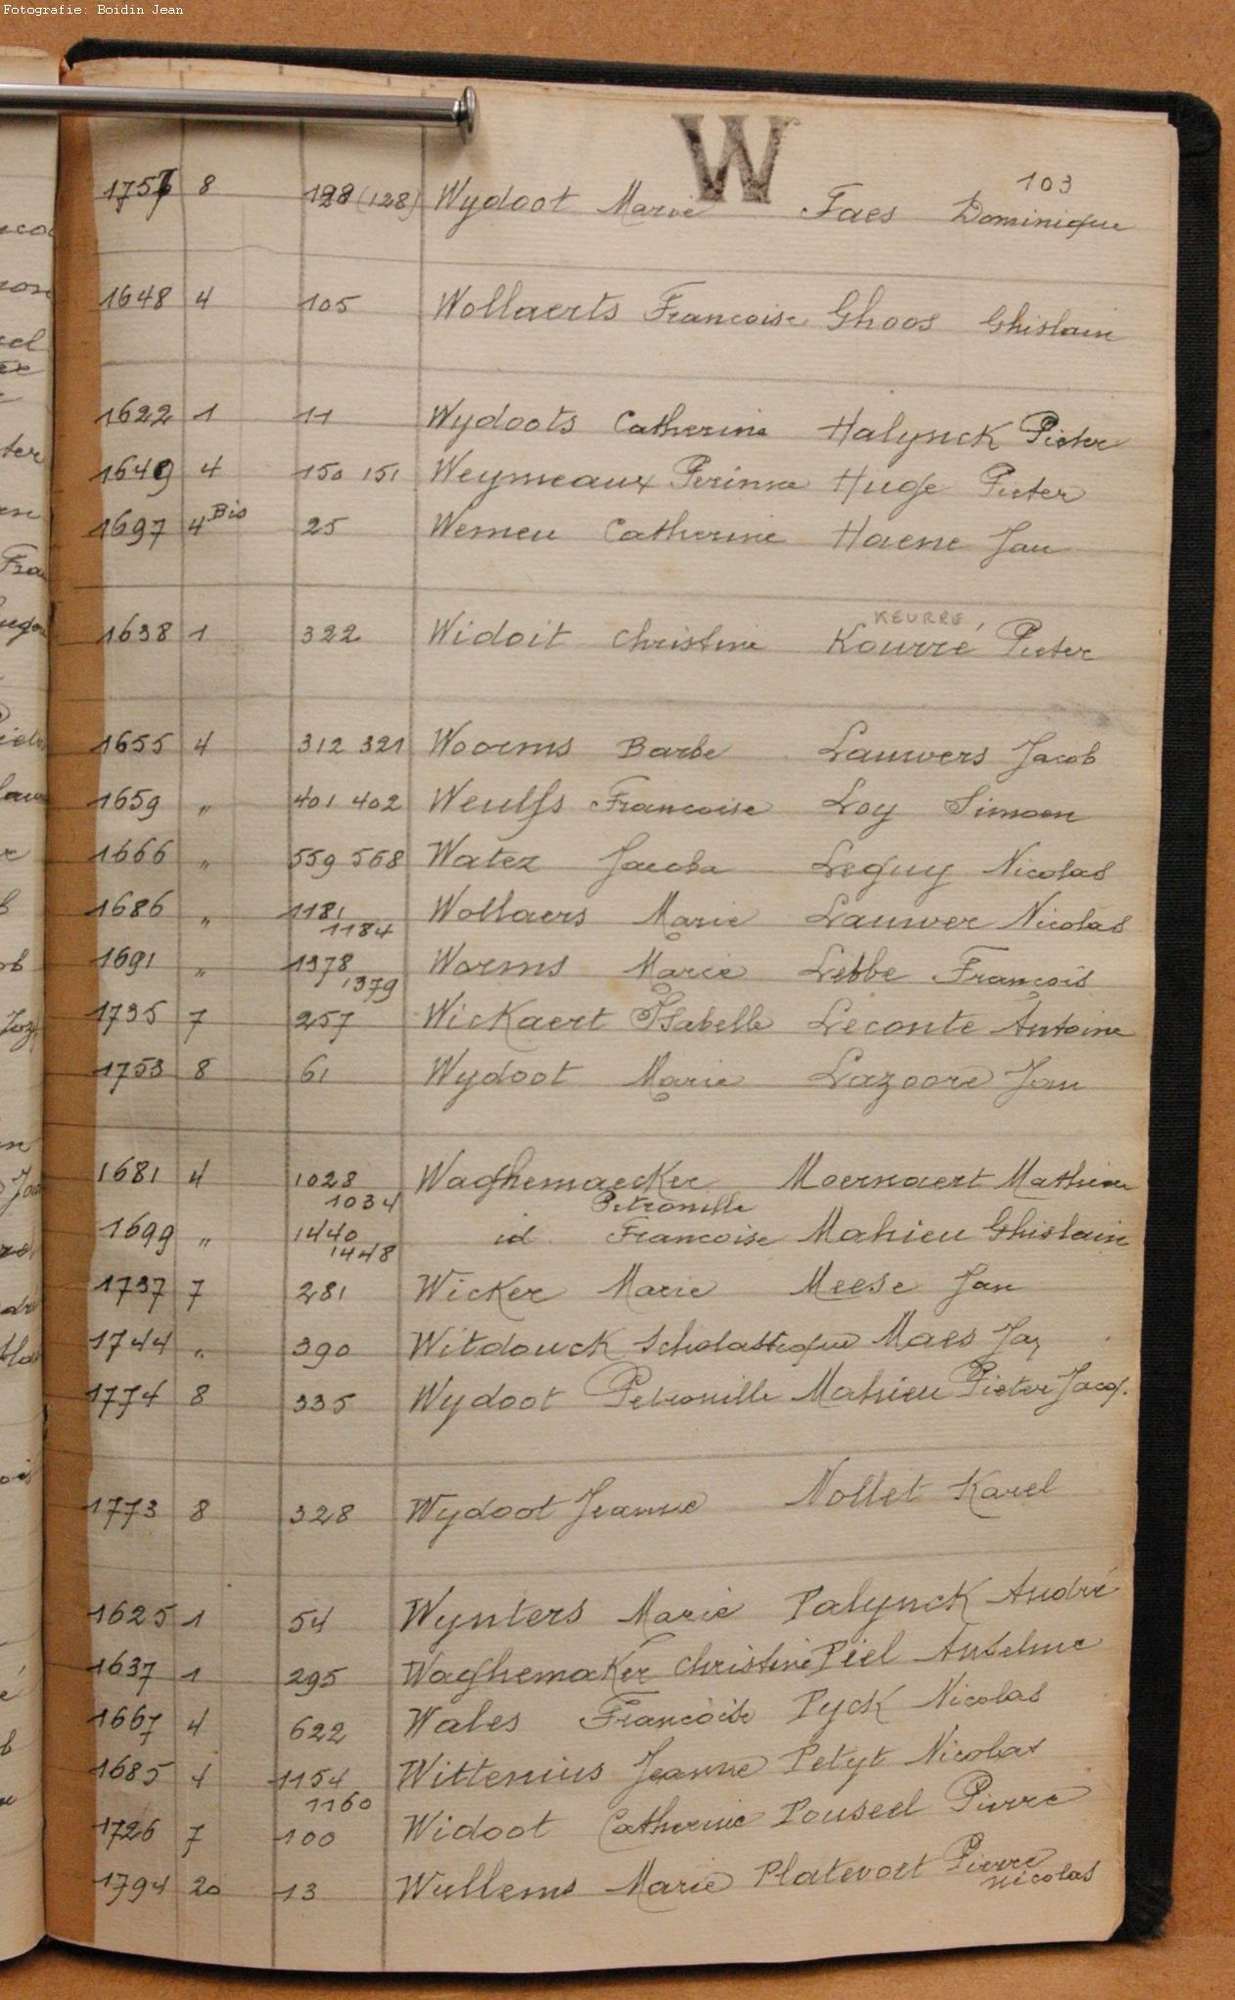 Fotografie: Boidin Jean
W
103
1757 8 128 (128) Wydoot Marie Faes Dominique
1648 4 105 Wollaerts Francoise Ghoos Ghislain
1622 1 11 Wydoots Catherine Halynck Pieter
1649 4 150 151 Weymeaux Perinne Huge Pieter
1697 4 Bis 25 Wemeu Catherine Haene Jan
KEURRE
1638 1 322 Widoit Christine Kourré Pieter
1655 4 312 321 Woorms Barbe Lauwers Jacob
1659 " 401 402 Weulfs Francoise Loy Simoen
1666 " 559 568 Watez Jacoba Leguy Nicolas
1686 " 1181 Wollaers Marie Lauwer Nicolas
1184
1691 " 1378 Worms Marie Lebbe François
1379
1735 7 257 Wickaert Isabelle Leconte Antoine
1753 8 61 Wydoot Marie Lazoore Jan
1681 4 1028 Waghemaecker Moernaert Mathieu
1034 Petronille
1699 " 1440 id Francoise Mahieu Ghislain
1448
1737 7 281 Wicker Marie Meese Jan
1744 " 390 Witdouck Scholastique Maes
1774 8 335 Wydoot Petronille Mahieu Pieter Jacq.
1773 8 328 Wydoot Jeanne Nollet Karel
1625 1 54 Wynters Marie Palynck André
1637 1 295 Waghemaker Christine Piel Anselme
1667 4 622 Wales Francoise Pyck Nicolas
1685 4 1154 Wittenius Jeanne Petyt Nicolas
1160
1726 7 100 Widoot Catherine Pouseel Pierre
1794 20 13 Wullems Marie Platevoet Pierre
Nicolas